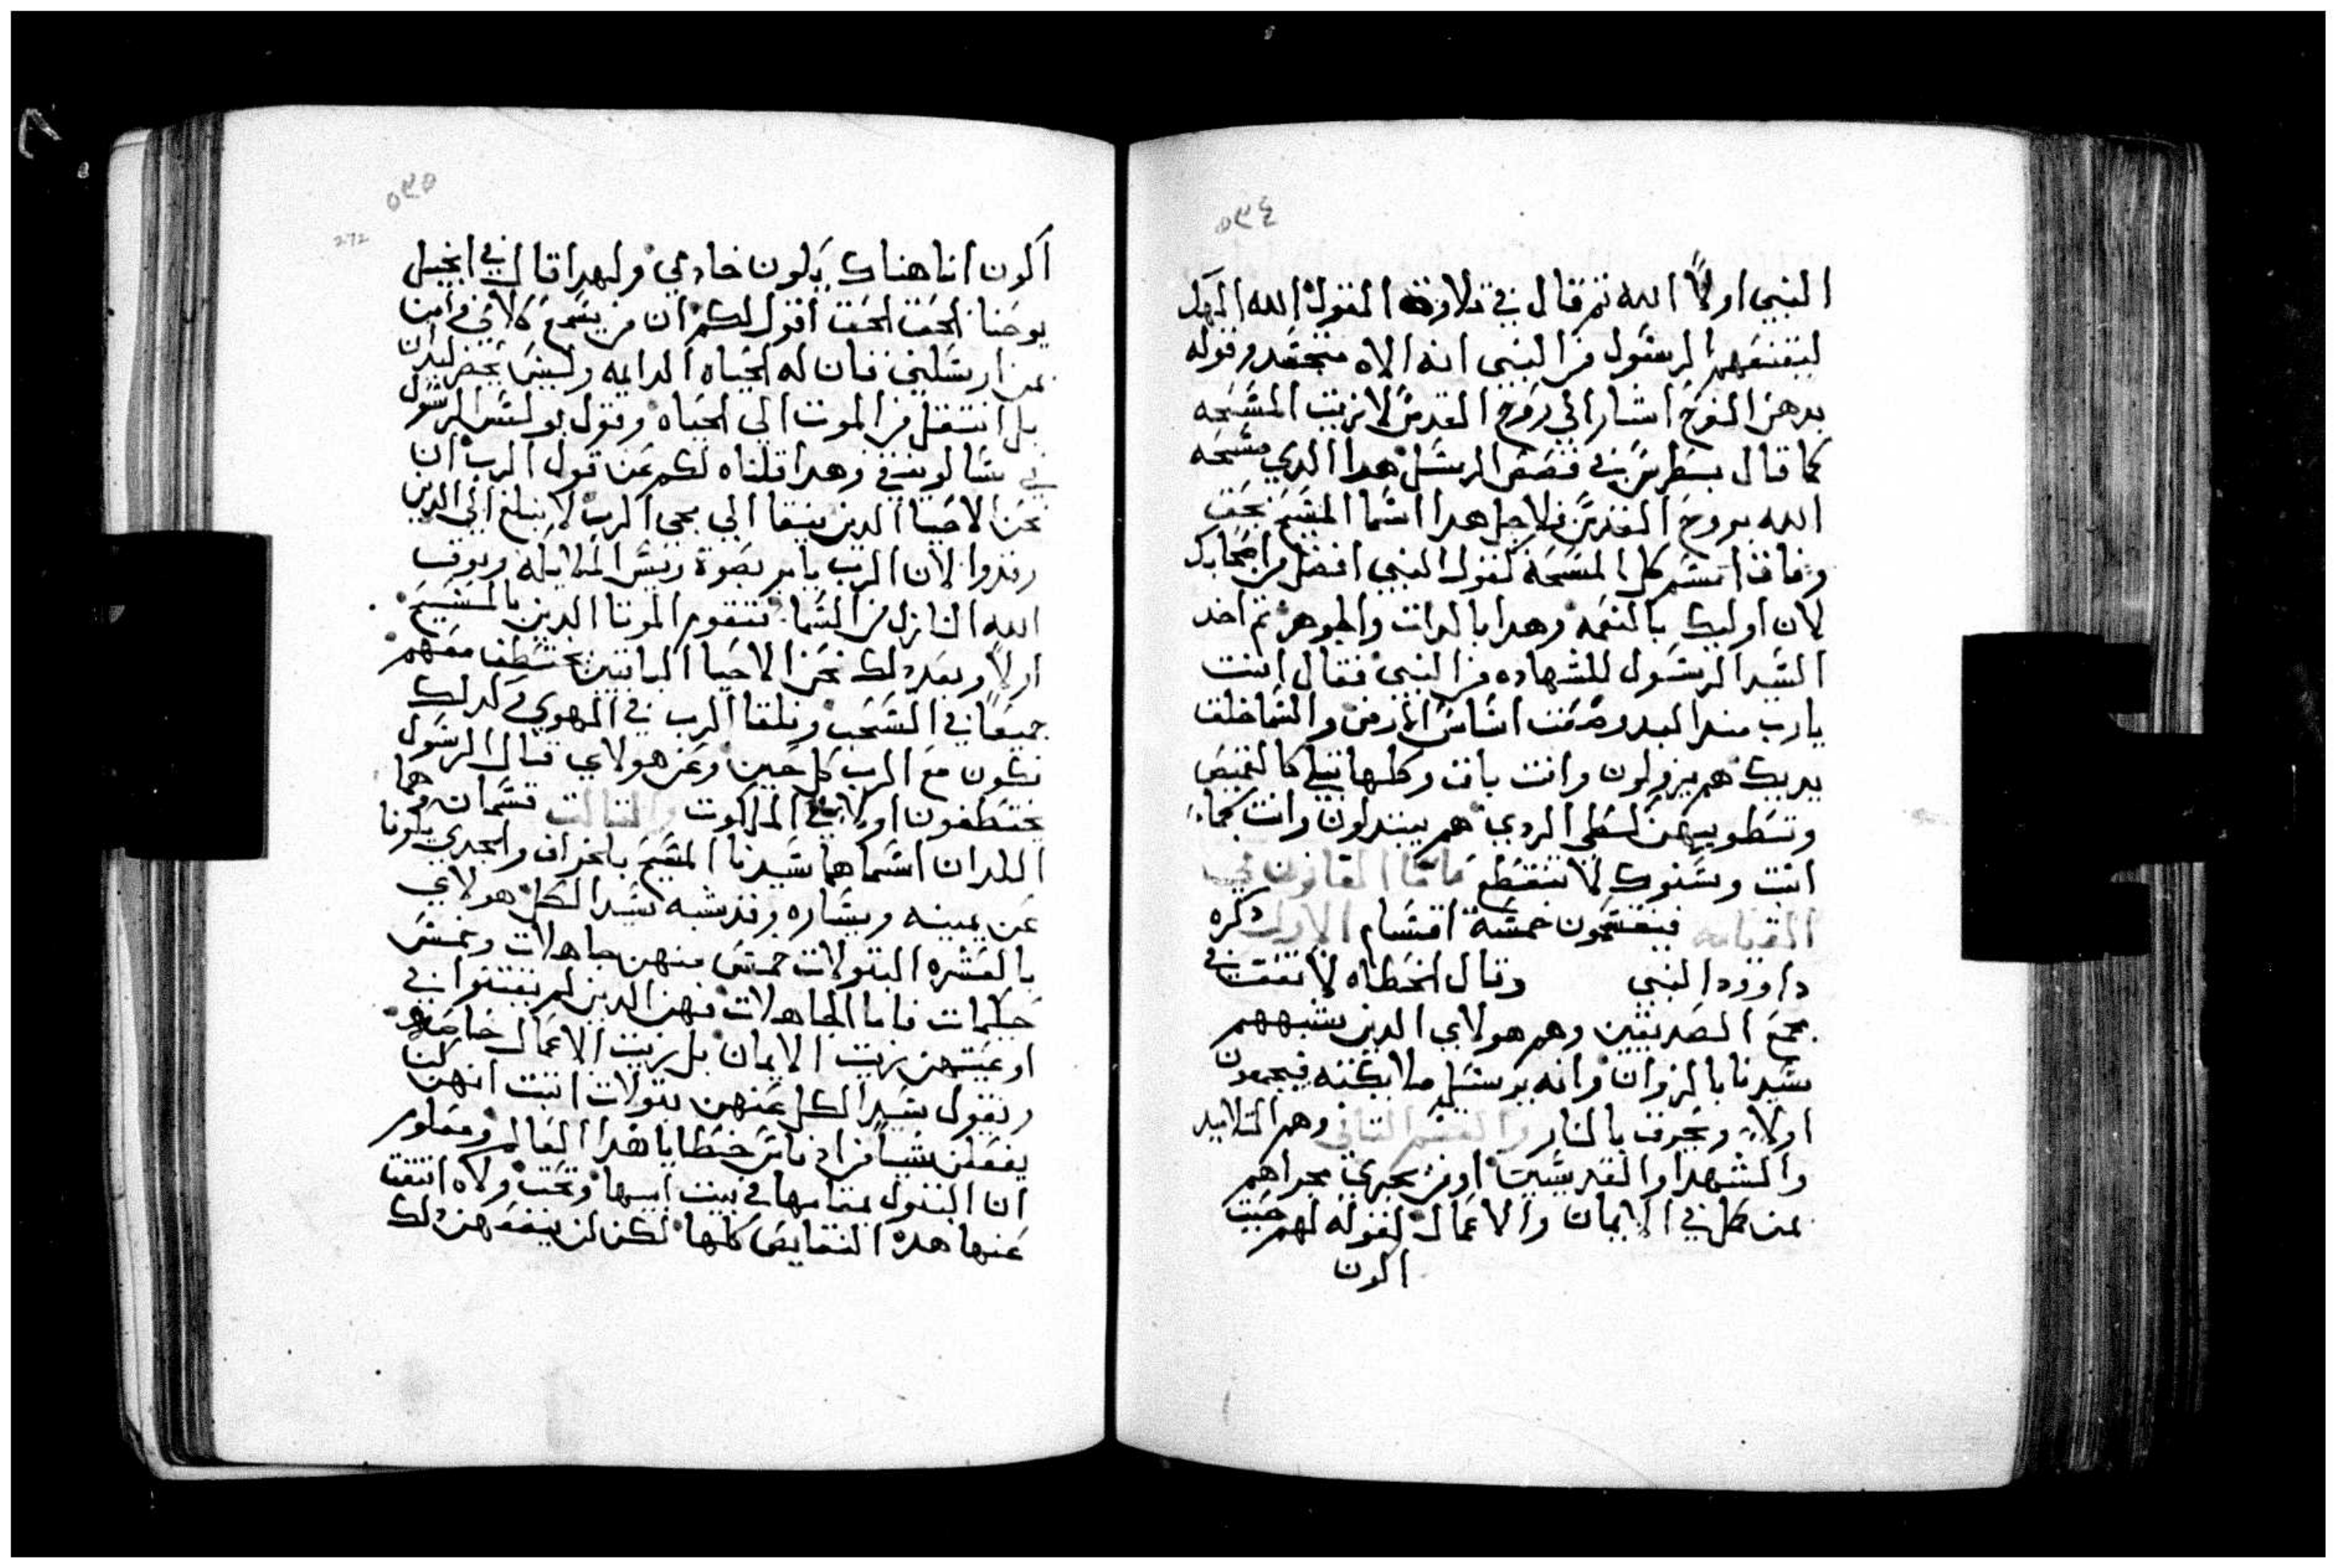 ٥٩٤
النبي اولاً الله تم قال في تلاوة القول الله الهك
ليقنعهم الرسول من النبي انه الاه متجسد وقوله
بدهن الفرح اشار الي روح القدس لا بزيت المسحه
كما قال بطرس في قصص الرسل هدا الدي مسحه
الله بروح القدس فلاجل هدا اسما المسيح بحق
وفاق اسم كل المسحه كقول النبي افضل من اصحابك
لان اوليك بالنعمه وهدا بالدات والجوهر تم اخد
السيد الرسول للشهاده من النبي فقال انت
يارب مند البدو وضعت اساس الارض والسما خلقت
يديك هم يزولون وانت باق وكلها تبلي كالقميص
وتطويهن كطي الردي هم يبتدلون وانت كما
انت وسنوك لا تنقطع فاما القانون في
القيامه فينقسمون خمسة اقسام الاول دكره
داوود النبي وقال الخطاه لا تقف في
مجمع الصديقين وهم هولاي الدين يشبههم
سيدنا بالزوان وانه يرسل ملايكته فيجمعون
اولاً ويحرق بالنار والقسم التاني وهم التلاميد
والشهدا والقديسين اومن يجري مجراهم
ممن كمل في الايمان والاعمال لقوله لهم حيت
اكون
٥٩٥
272
اكون انا هناك يكون خادمي ولهدا قال في انجيل
يوحنا الحق الحق اقول لكم ان من يسمع كلامي وامن
بمن ارسلني فان له الحياه الدايمه وليس يحضر ليدان
بل انتقل من الموت الي الحياه وقول بولس الرسول
في تسالونيقي وهدا قلناه لكم عن قول الرب ان
نحن الاحيا الدين نبقا الي مجي الرب لا نبلغ الي الدين
رقدوا لان الرب يامر بصوة ريس الملايكه وبوق
الله النازل من السما فتقوم الموتا الدين بالمسيح
اولاً وبعد دلك نحن الاحيا الباقين نختطف معهم
جميعاً في السحب ونلقا الرب في الهوي وكدلك
نكون مع الرب كل حين وعن هولاي قال الرسول
يختطفون اولاً في الملكوت والتالت قسمان وهما
اللدان اسماهما سيدنا المسيح بالخراف والجدي يكونا
عن يمينه ويساره وقد شبه سيد الكل هولاي
بالعشره البتولات خمس منهن جاهلات وخمس
حكيمات فاما الجاهلات فهن الدين لم يقتنوا في
اوعيتهن زيت الايمان بل زيت الاعمال خاصه
ويقول سيد الكل عنهن بتولات اتبت انهن لن
يفعلن شياً من ادناس خطايا هدا العالم ومعلوم
ان البتول بمقامها في بيت ابيها وتحت ولاه انتفت
عنها هده النقايص كلها لكن لن ينفعهن دلك